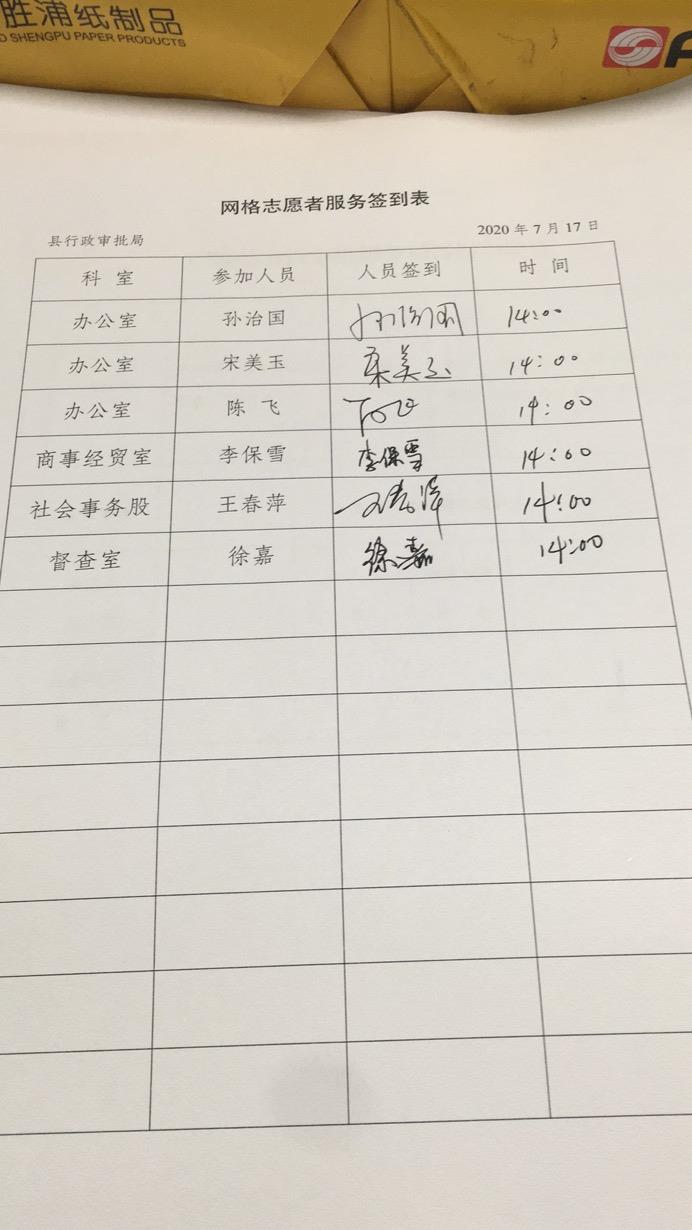 胜浦纸制品
SHENGPU PAPER PRODUCTS
网格志愿者服务签到表
县行政审批局 2020年7月17日
科 室 参加人员 人员签到 时 间
办公室 孙治国 孙治国 14:00
办公室 宋美玉 宋美玉 14:00
办公室 陈 飞 陈飞 14:00
商事经贸室 李保雪 李保雪 14:00
社会事务股 王春萍 王春萍 14:00
督查室 徐嘉 徐嘉 14:00